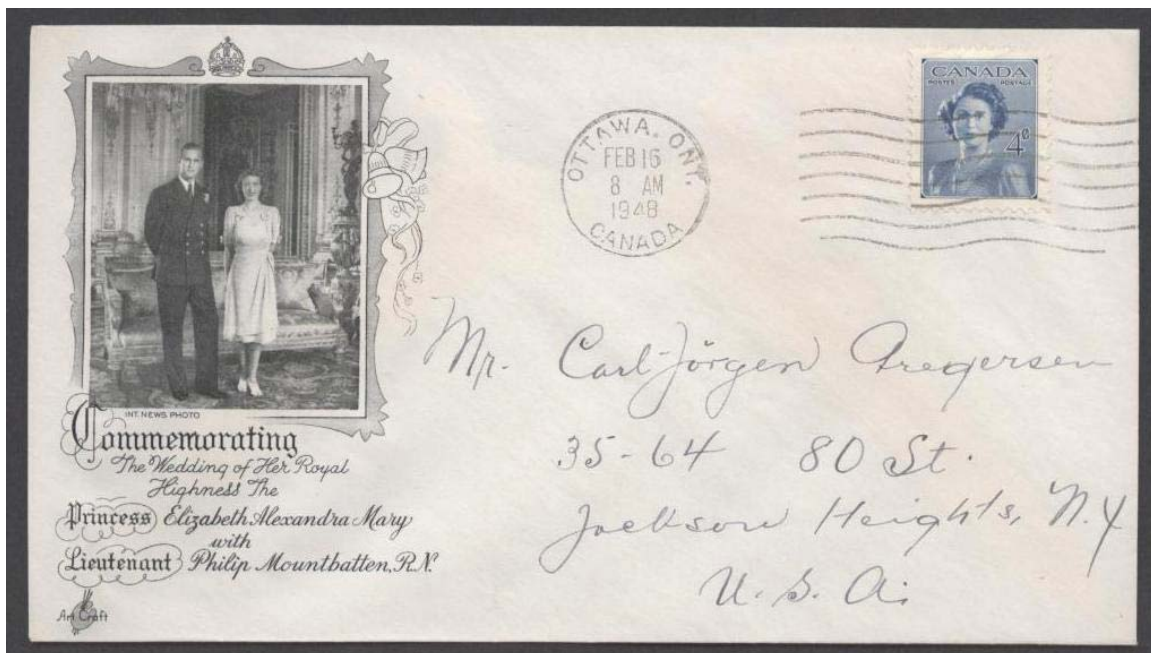 INT. NEWS PHOTO
Commemorating
The Wedding of Her Royal
Highness The
Princess Elizabeth Alexandra Mary
with
Lieutenant Philip Mountbatten, R.N.
Art Craft
OTTAWA, ONT.
FEB 16
8 AM
1948
CANADA
CANADA
POSTES POSTAGE
4¢
Mr. Carl-Jörgen Gregersen
35-64 80 St.
Jackson Heights, N.Y
U. S. A.